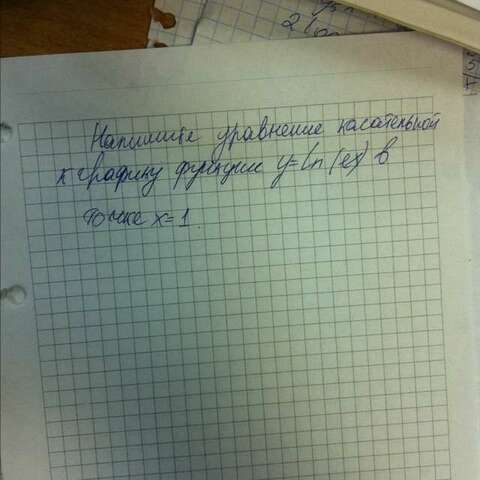 Напишите уравнение касательной
к графику функции y=ln(ex) в
точке x=1.